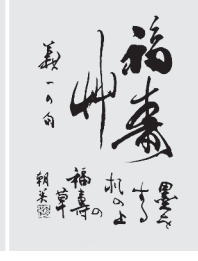 福壽
艸
義一の句
墨を
する
机の上
の
福壽
草
朝美